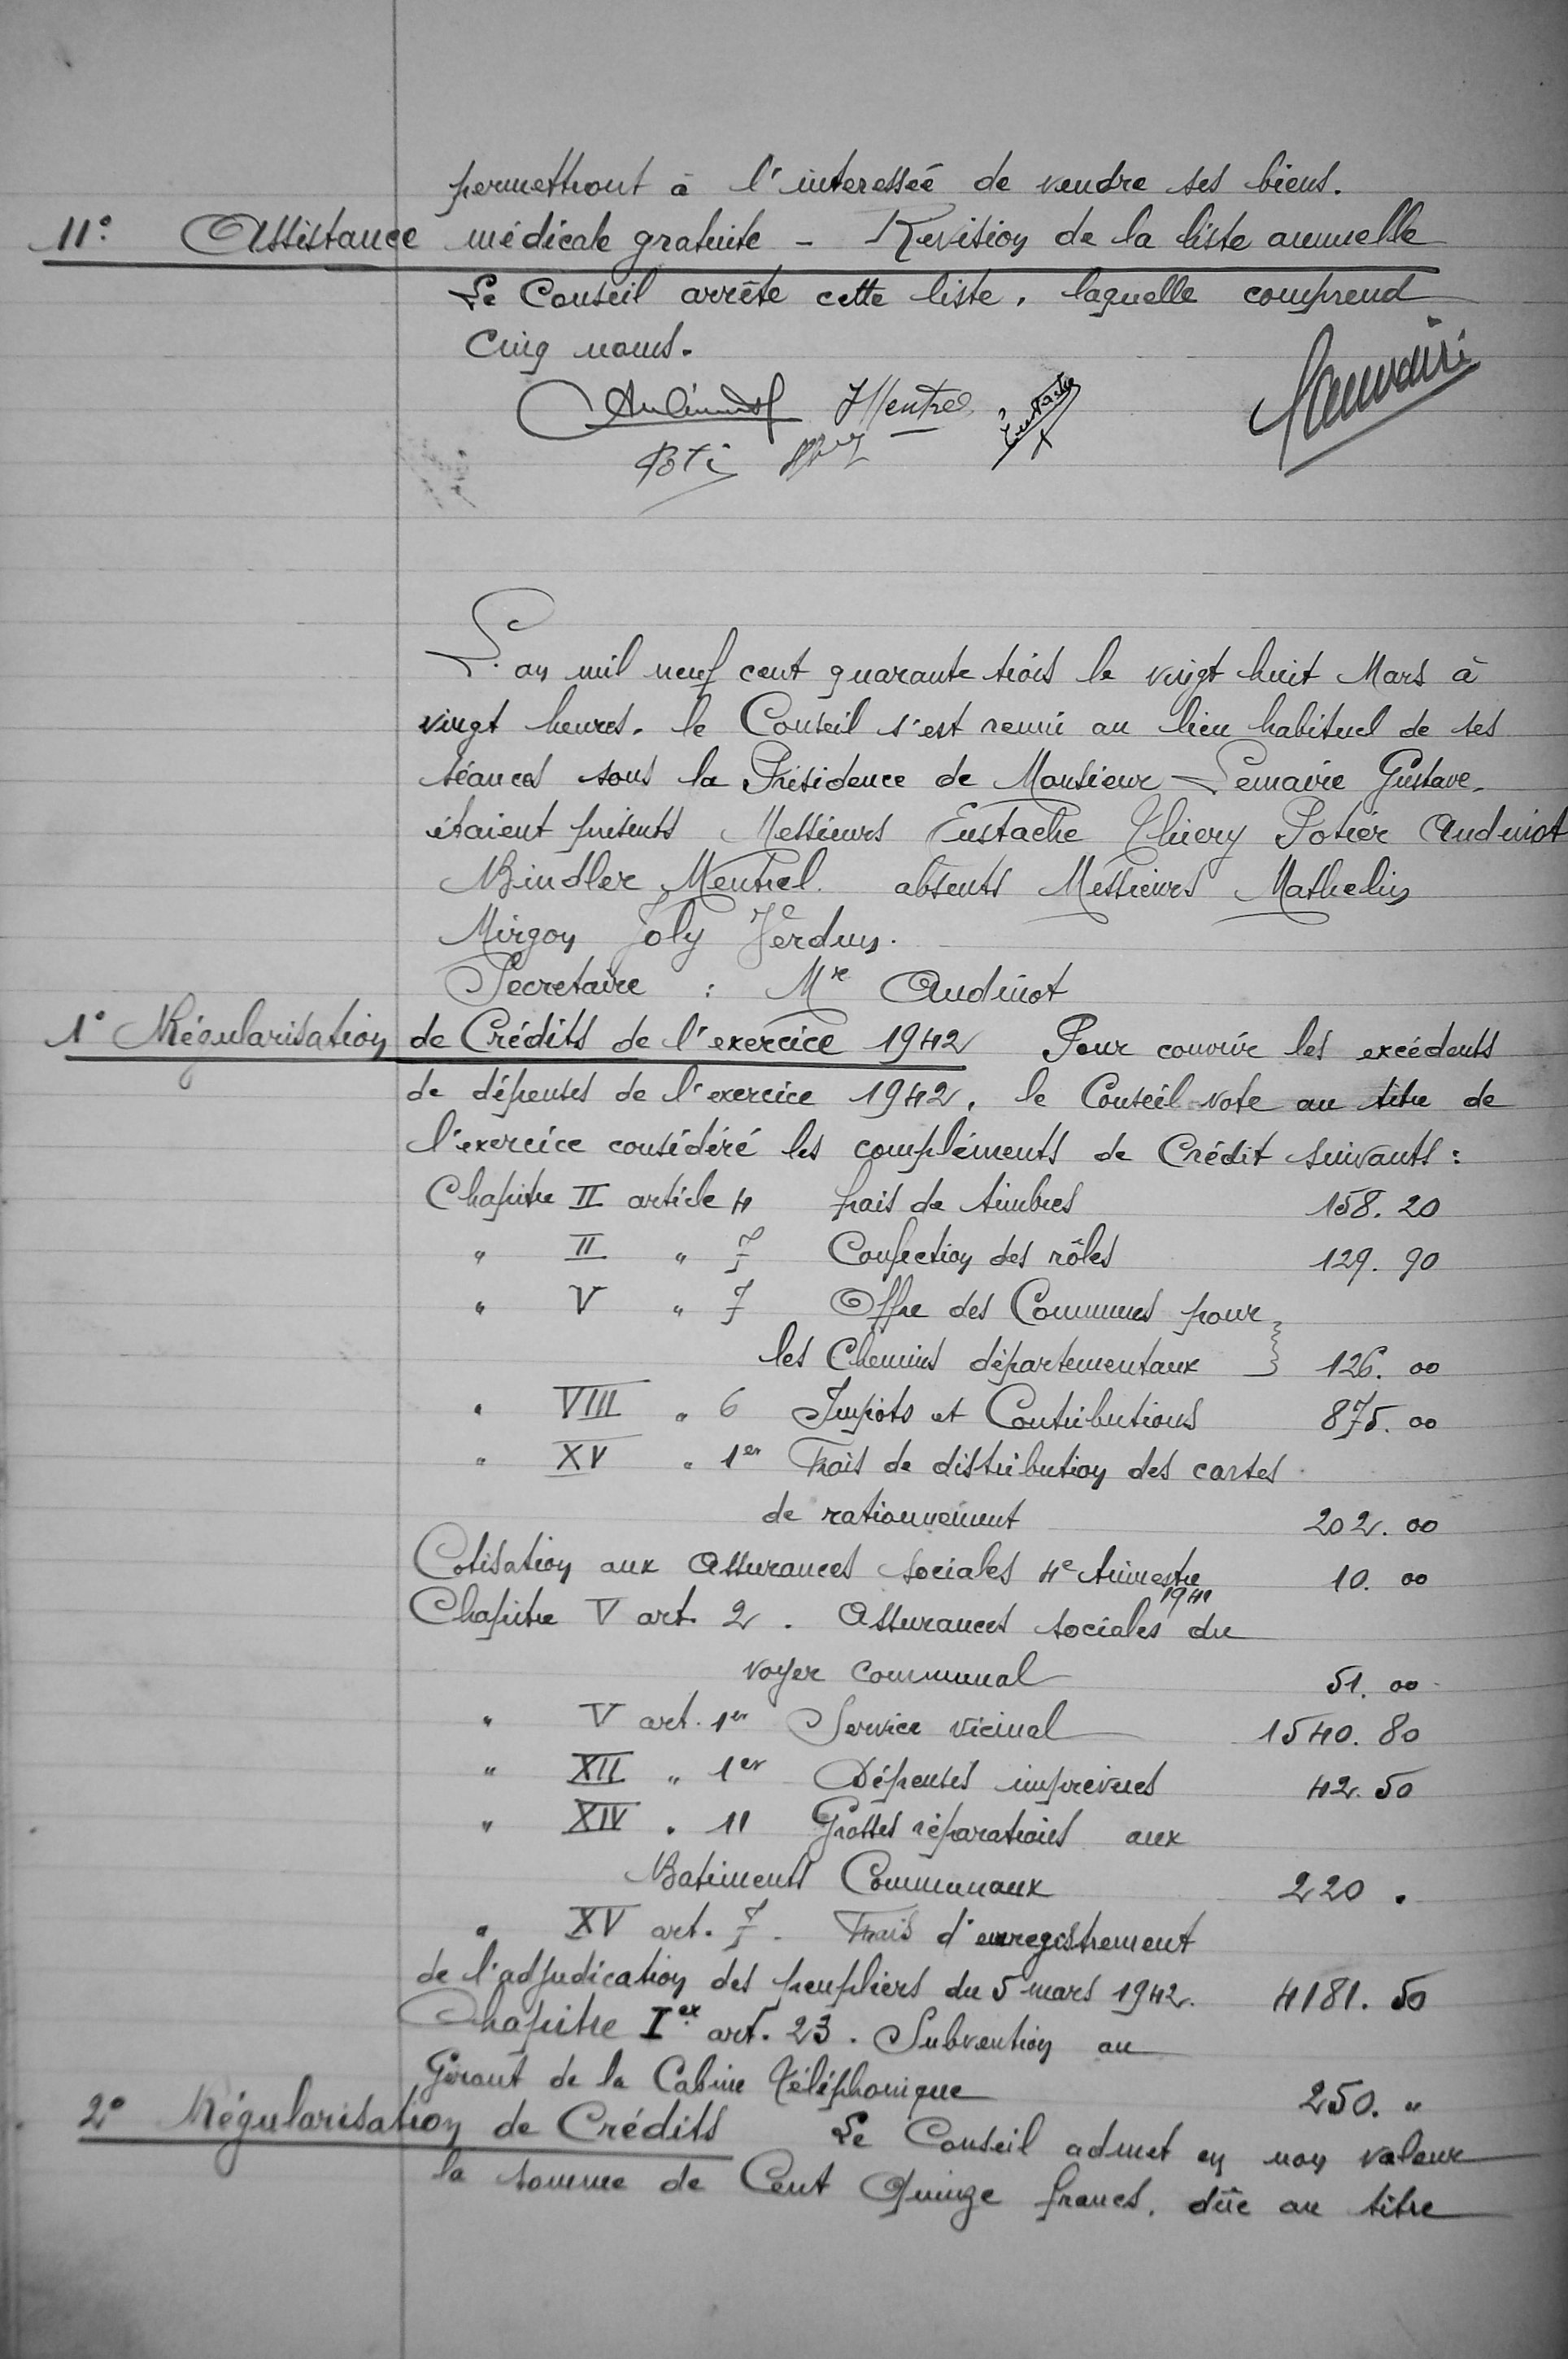 permettront à l'interessée de vendre ses biens.
11° Assistance médicale gratuite - Revision de la liste annuelle
Le Conseil arrête cette liste, laquelle comprend
Cinq noms.
Mentrel Eustache
L'an mil neuf cent quarante trois le vingt huit Mars à
vingt heures. le Conseil s'est reuni au lieu habituel de ses
séances sous la Présidence de Monsieur Lemaire Gustave.
étaient présents Messieurs Eustache Thiery Potier Audinot
Bindler Mentrel. absents Messieurs Mathelin
Mirgon Joly Verdun.
Secretaire : Mr Audinot
1° Régularisation de Crédits de l'exercice 1942 Pour couvrir les excédents
de dépenses de l'exercice 1942, le Conseil vote au titre de
l'exercice considéré les compléments de Crédit suivants :
Chapitre II article 4 frais de timbres 158. 20
" II " 7 Confection des rôles 129. 90
" V " 7 Offre des Communes pour
les Chemins départementaux } 126. 00
" VIII " 6 Impôts et Contributions 875. 00
" XV " 1er Frais de distribution des cartes
de rationnement 202. 00
Cotisation aux Assurances Sociales 4e trimestre 10. 00
1941
Chapitre V art. 2. Assurances sociales du
voyer communal 51. 00
" V art. 1er Service vicinal 1540. 80
" XII " 1er Dépenses imprévues 42. 50
" XIV " 11 Grosses réparations aux
Batiments Communaux 220 .
" XV art. 7. Frais d'enregistrement
de l'adjudication des peupliers du 5 mars 1942. 4181. 50
Chapitre Ier art. 23. Subvention au
Gérant de la Cabine Téléphonique 250. "
2° Régularisation de Crédits Le Conseil admet en non valeur
la somme de Cent Quinze francs, dûe au titre